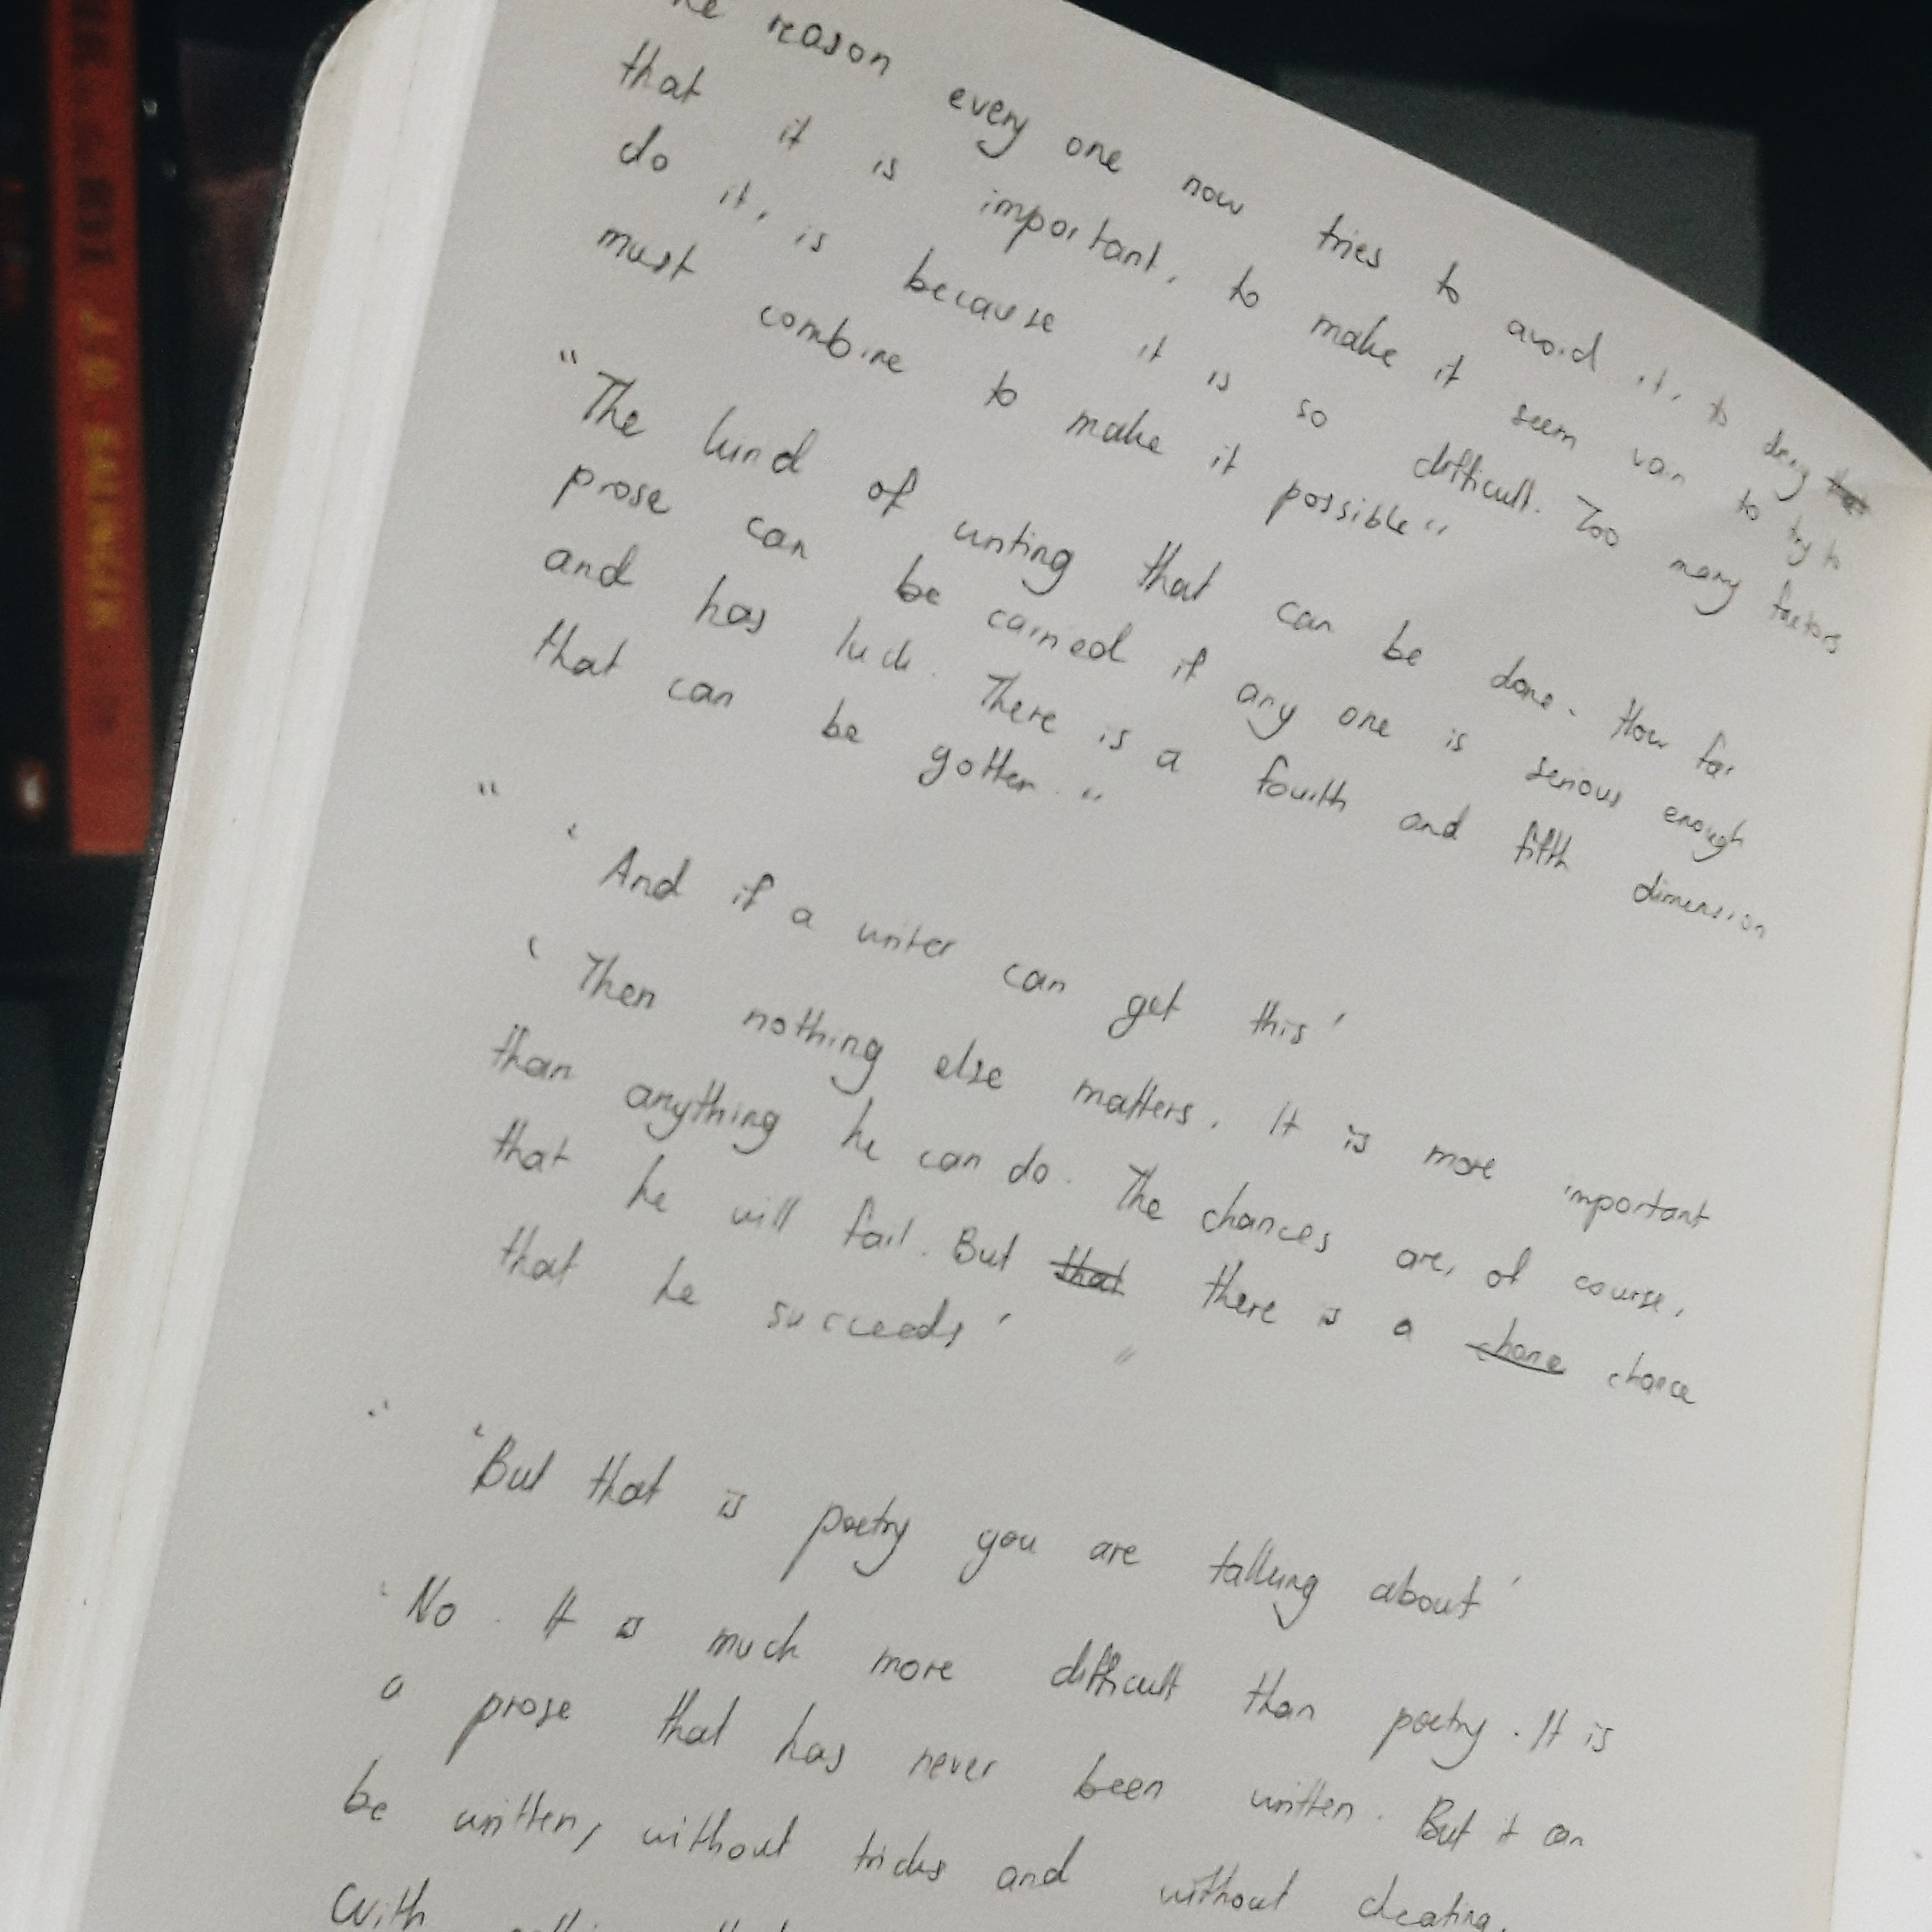 reason every one now tries to avoid it, to deny that
that it is important, to make it seem vain to try to
do it, is because it is so difficult. Too many factors
must combine to make it possible"
"The kind of writing that can be done. How far
prose can be carried if any one is serious enough
and has luck. There is a fourth and fifth dimension
that can be gotten."
" 'And if a writer can get this'
'Then nothing else matters. It is more important
than anything he can do. The chances are, of course,
that he will fail. But that there is a chance chance
that he succeeds' "
" 'But that is poetry you are talking about'
'No. It is much more difficult than poetry. It is
a prose that has never been written. But it can
be written, without tricks and without cheating.
With